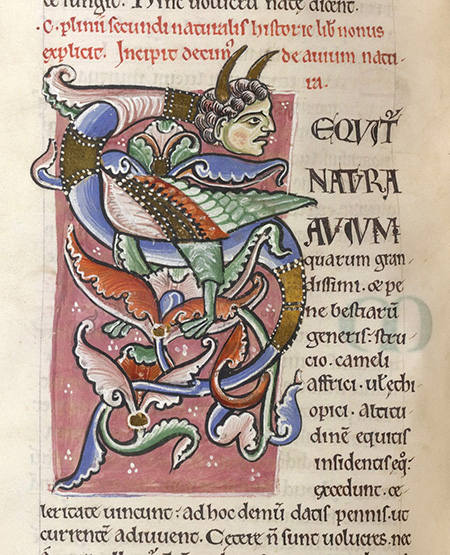 Hinc volucrū natē dicent.
.C. plinii secundi naturalis historie lib nonus
explicit. Incipit decim' de avium natu
ra.
SEQVIT'
NATVRA
AVIVM
quarum gran-
dissimi. & pe-
ne bestiarū
generis. stru-
cio. cameli
affrici. ul' ęthi-
opici. altitu-
dinē equitis
insidentis eq'.
excedunt. ce-
leritate vincunt. ad hoc demū datis pennis. ut
currentē adiuvent. Cetere ñ sunt volucres. nec